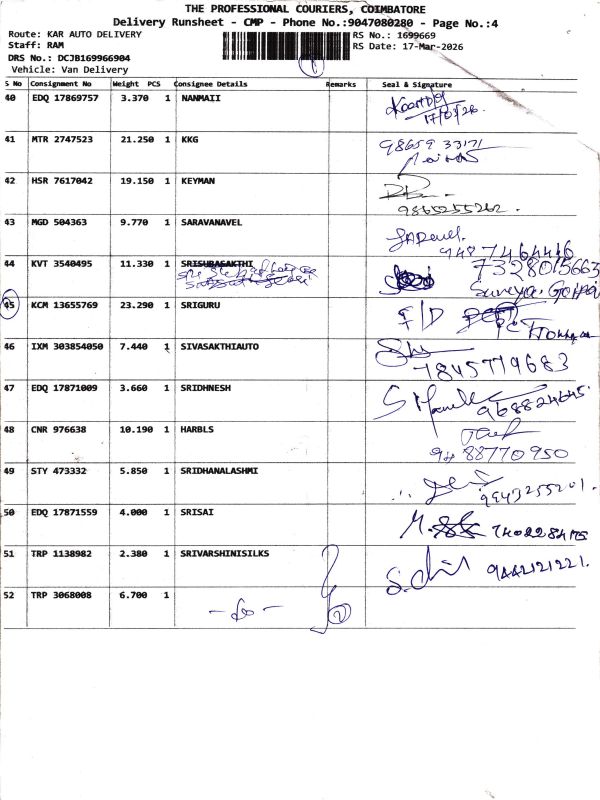 THE PROFESSIONAL COURIERS, COIMBATORE
Delivery Runsheet - CMP - Phone No.:9047080280 - Page No.:4
Route: KAR AUTO DELIVERY
RS No.: 1699669
Staff: RAM
RS Date: 17-Mar-2026
DRS No.: DCJB169966904
Vehicle: Van Delivery
S No Consignment No Weight PCS Consignee Details Remarks Seal & Signature
40 EDQ 17869757 3.370 1 NANMAII
17/03/26
41 MTR 2747523 21.250 1 KKG
98659 33171
42 HSR 7617042 19.150 1 KEYMAN
9865255262.
43 MGD 504363 9.770 1 SARAVANAVEL
9487464416
44 KVT 3540495 11.330 1 SRISUBASAKTHI
7328015663
45 KCM 13655769 23.290 1 SRIGURU
F/D
46 IXM 303854050 7.440 1 SIVASAKTHIAUTO
7845719683
47 EDQ 17871009 3.660 1 SRIDHNESH
48 CNR 976638 10.190 1 HARBLS
9488770950
49 STY 473332 5.850 1 SRIDHANALASHMI
9943255201.
50 EDQ 17871559 4.000 1 SRISAI
51 TRP 1138982 2.380 1 SRIVARSHINISILKS
9442121221.
52 TRP 3068008 6.700 1
- do -
2